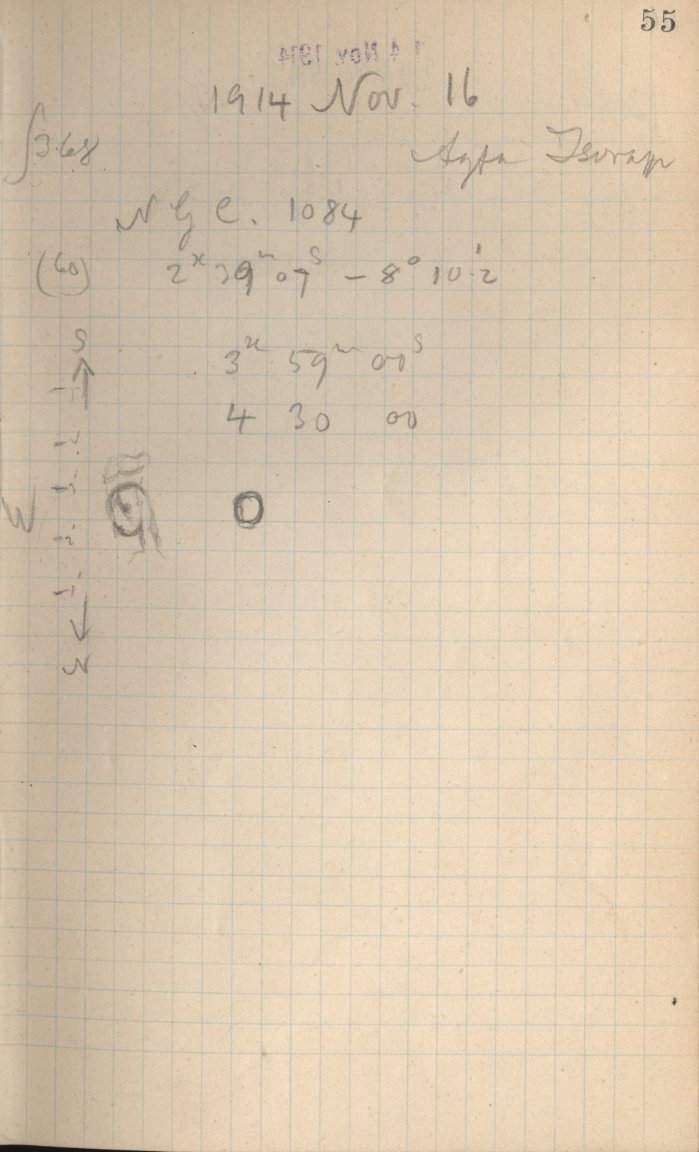 55
14 Nov 1914
1914 Nov. 16
∫368
Agfa Isorap
N G C. 1084
(60) 2ˣ 39ᵐ 07ˢ – 8° 10'.2
S
3ˣ 59ᵐ 00ˢ
4 30 00
W
N